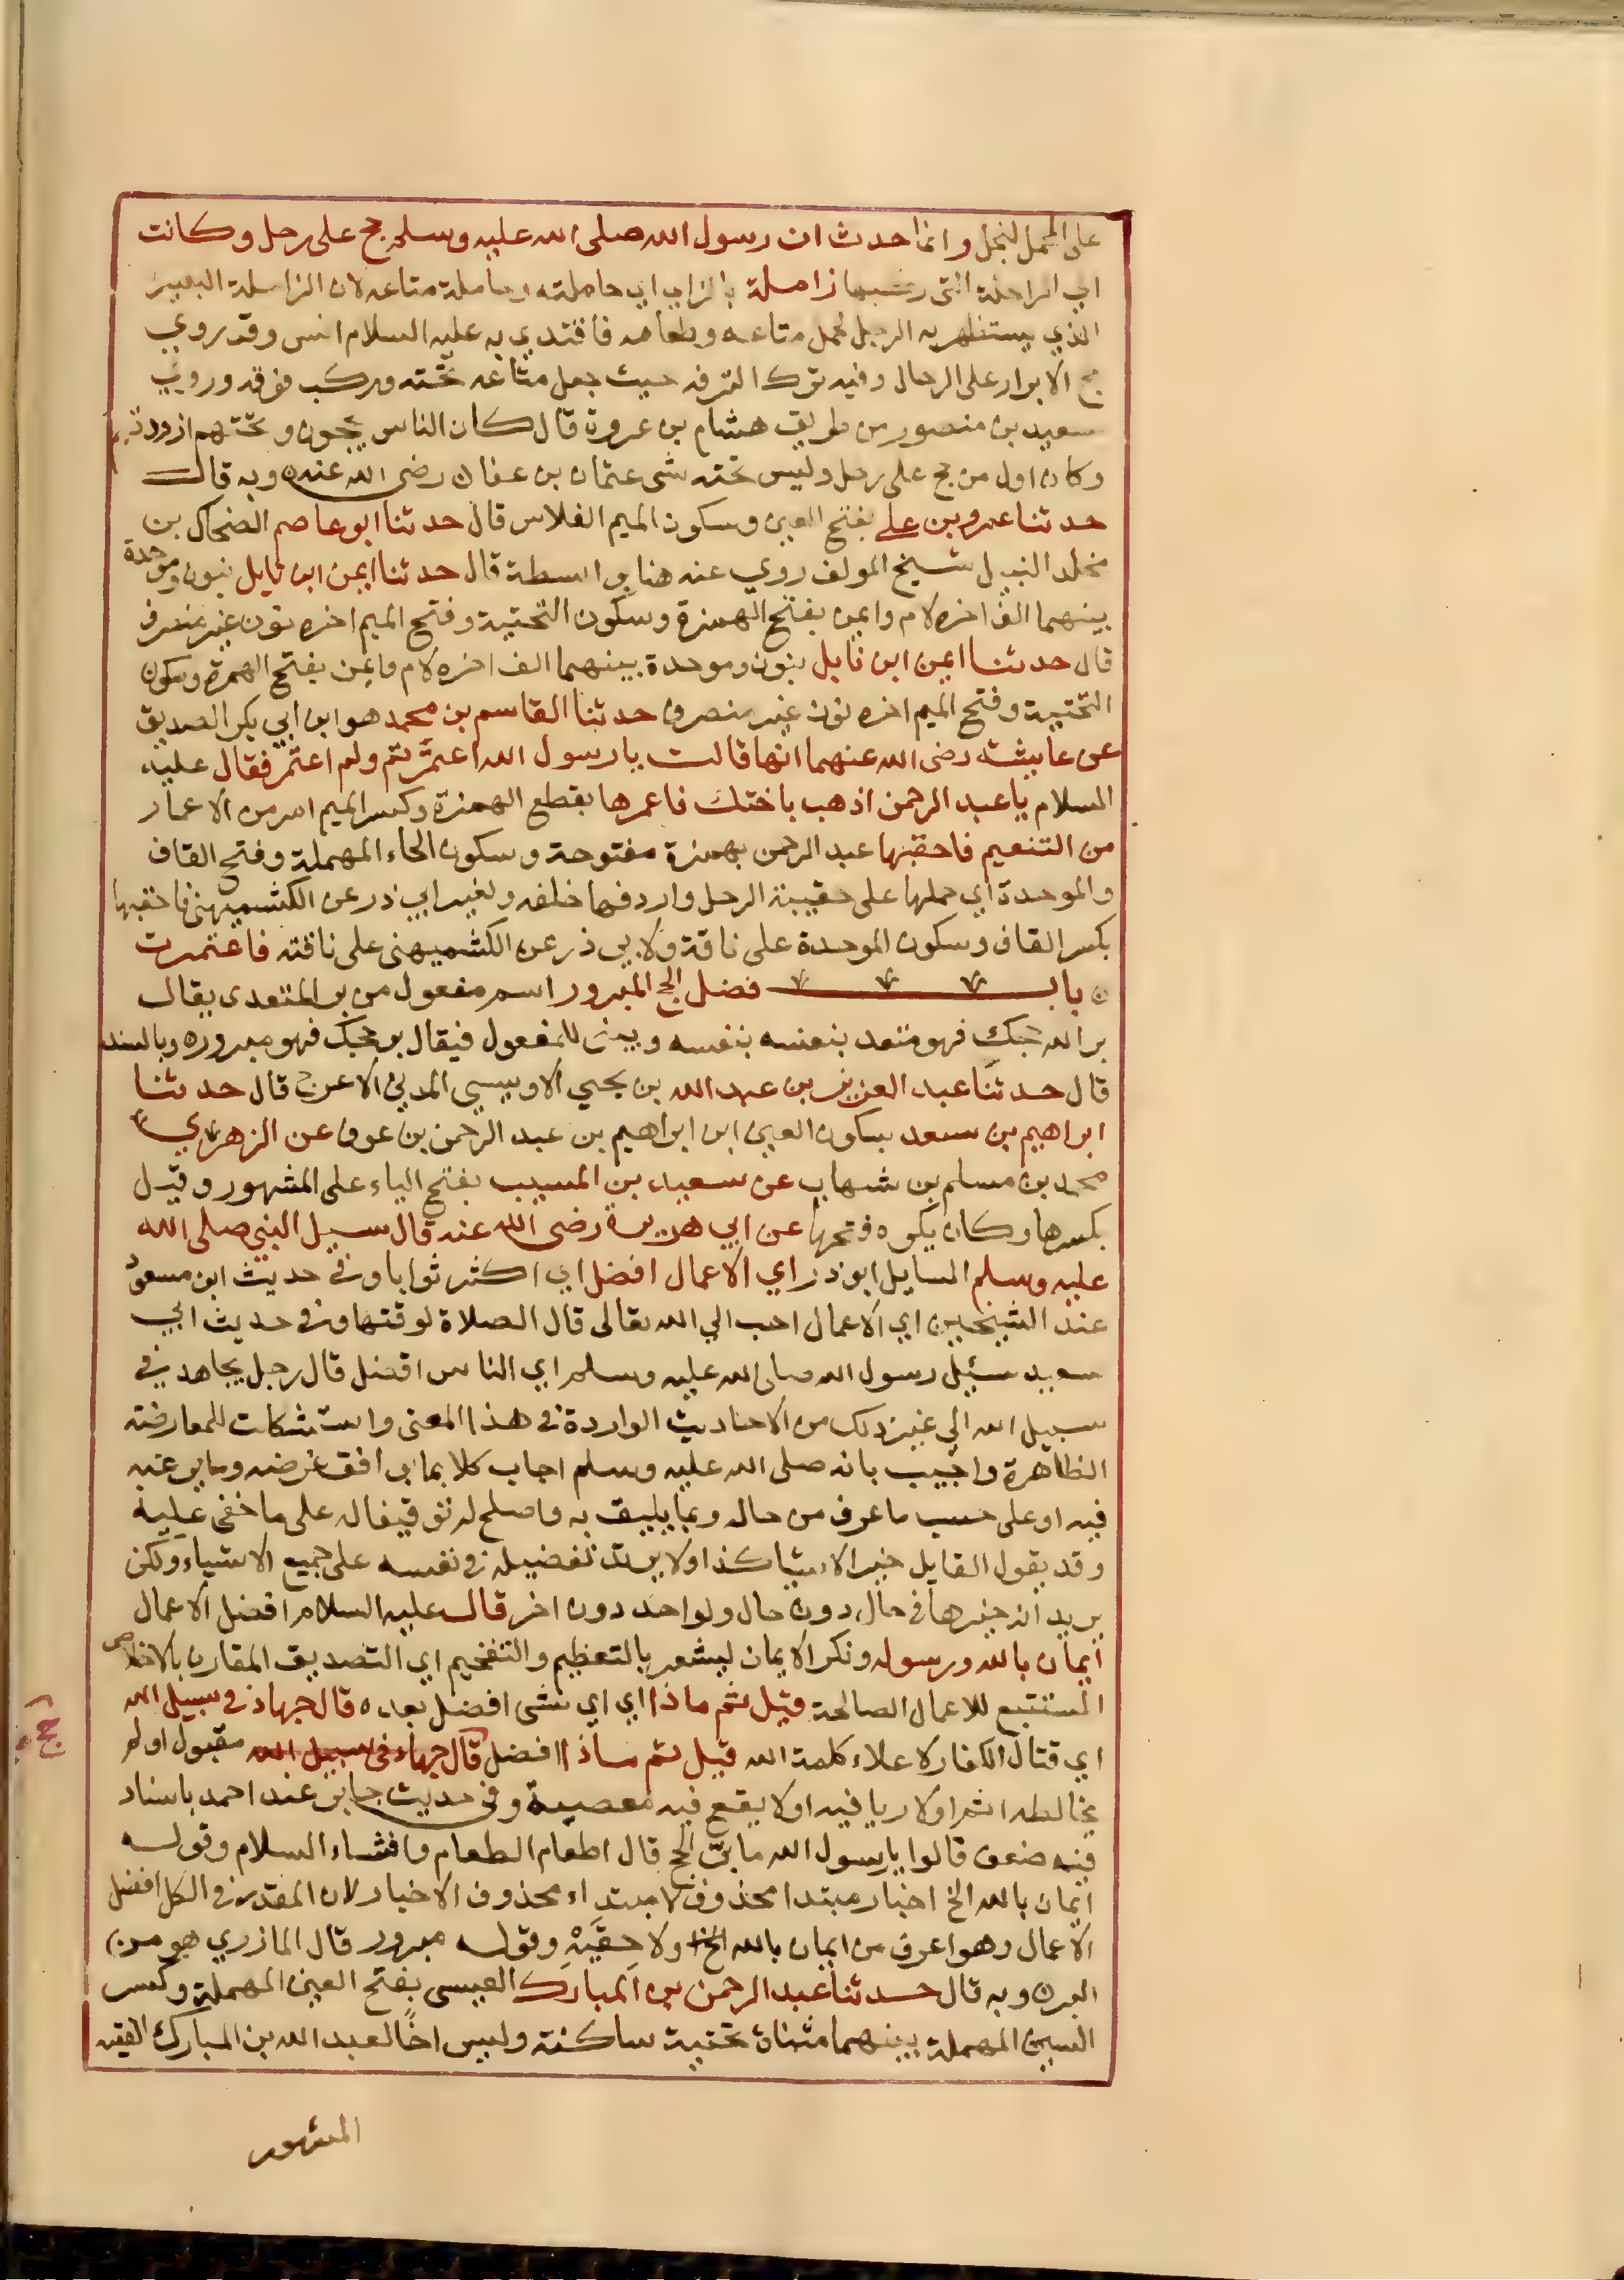 على المحمل لنجل وانما حدث ان رسول الله صلى الله عليه وسلم حج على رحل وكانت
اي الراحلة التي ركبها زاملة بالزاي اي حاملته وحاملة متاعه لان الزاملة البعير
الذي يستظهر به الرجل لحمل متاعه وطعامه فاقتدي به عليه السلام انس وقد روي
حج الابرار على الرحال وفيه ترك الترفه حيث جعل متاعه تحته وركب فوقه وروي
سعيد بن منصور من طريق هشام بن عروة قال كان الناس يحجون وتحتهم ازودتهم
وكان اول من حج على رحل وليس تحته شى عثمان بن عفان رضى الله عنه ه وبه قال
حدثنا عمرو بن علي بفتح العين وسكون الميم الفلاس قال حدثنا ابو عاصم الضحاك بن
مخلد النبيل شيخ المولف روي عنه هنا بواسطة قال حدثنا ايمن ابن نابل بنون وموحدة
بينهما الف اخره لام وايمن بفتح الهمزة وسكون التحتية وفتح الميم اخره نون غير منصرف
قال حدثنا ايمن ابن نابل بنون وموحدة بينهما الف اخره لام وايمن بفتح الهمزة وسكون
التحتية وفتح الميم اخره نون غير منصرف حدثنا القاسم بن محمد هو ابن ابي بكر الصديق
عن عايشة رضى الله عنهما انها قالت يا رسول الله اعتمرتم ولم اعتمر فقال عليه
السلام يا عبد الرحمن اذهب باختك فاعمرها بقطع الهمزة وكسر الميم امر من الاعمار
من التنعيم فاحقبها عبد الرحمن بهمزة مفتوحة وسكون الحاء المهملة وفتح القاف
والموحدة اي حملها على حقيبة الرحل واردفها خلفه ولغير ابي ذر عن الكشميهنى فاحقبها
بكسر القاف وسكون الموحدة على ناقة ولابي ذر عن الكشميهنى على ناقته فاعتمرت
ه باب فضل الحج المبرور اسم مفعول من بر المتعدى يقال
بر الله حجك فهو متعد بنفسه بنفسه ويبنى للمفعول فيقال بر حجك فهو مبرور ه وبالسند
قال حدثنا عبد العزيز بن عبد الله بن يحيي الاويسي المدني الاعرج قال حدثنا
ابراهيم بن سعد بسكون العين ابن ابراهيم بن عبد الرحمن بن عوف عن الزهري
محمد بن مسلم بن شهاب عن سعيد بن المسيب بفتح الياء على المشهور وقيل
بكسرها وكان يكره فتحها عن ابي هريرة رضى الله عنه قال سيل النبي صلى الله
عليه وسلم السايل ابو ذر اي الاعمال افضل اي اكثر ثوابا وفي حديث ابن مسعود
عند الشيخين اي الاعمال احب الي الله تعالى قال الصلاة لوقتها وفي حديث ابي
سعيد سئيل رسول الله صلى الله عليه وسلم اي الناس افضل قال رجل يجاهد في
سبيل الله الي غير ذلك من الاحاديث الواردة في هذا المعنى واستشكلت للمعارضة
الظاهرة واجيب بانه صلى الله عليه وسلم اجاب كلا بما يوافق غرضه وما يرغبه
فيه او على حسب ما عرف من حاله وبما يليق به واصلح له توقيفا له على ما خفى عليه
وقد يقول القايل خير الاشيا كذا ولا يريد تفضيله في نفسه على جميع الاشياء ولكن
يريد انه خيرها في حال دون حال ولواحد دون اخر قال عليه السلام افضل الاعمال
ايمان بالله ورسوله ونكر الايمان ليشعر بالتعظيم والتفخيم اي التصديق المقارن بالاخلاص
المستتبع للاعمال الصالحة قيل ثم ماذا اي اي شى افضل بعده قال جهاد في سبيل الله
اي قتال الكفار لاعلاء كلمة الله قيل ثم ماذا افضل قال جهاد في سبيل الله مقبول او لم
يخالطه اثم او لا ريا فيه او لا يقع فيه معصية وفي حديث جابر عند احمد باسناد
فيه ضعف قالوا يا رسول الله ما بر الحج قال اطعام الطعام وافشاء السلام وقوله
ايمان بالله الخ اخبار مبتدا محذوف لا مبتداء محذوف الاخبار لان المقدر في الكل افضل
الاعمال وهو اعرف من ايمان بالله الخ ولاحقيه وقوله مبرور قال المازري هو من
البر ه وبه قال حدثنا عبد الرحمن بن المبارك العيسى بفتح العين المهملة وكسر
السين المهملة بينهما مثناة تحتية ساكنة وليس اخا لعبد الله بن المبارك الفقيه
المشهور